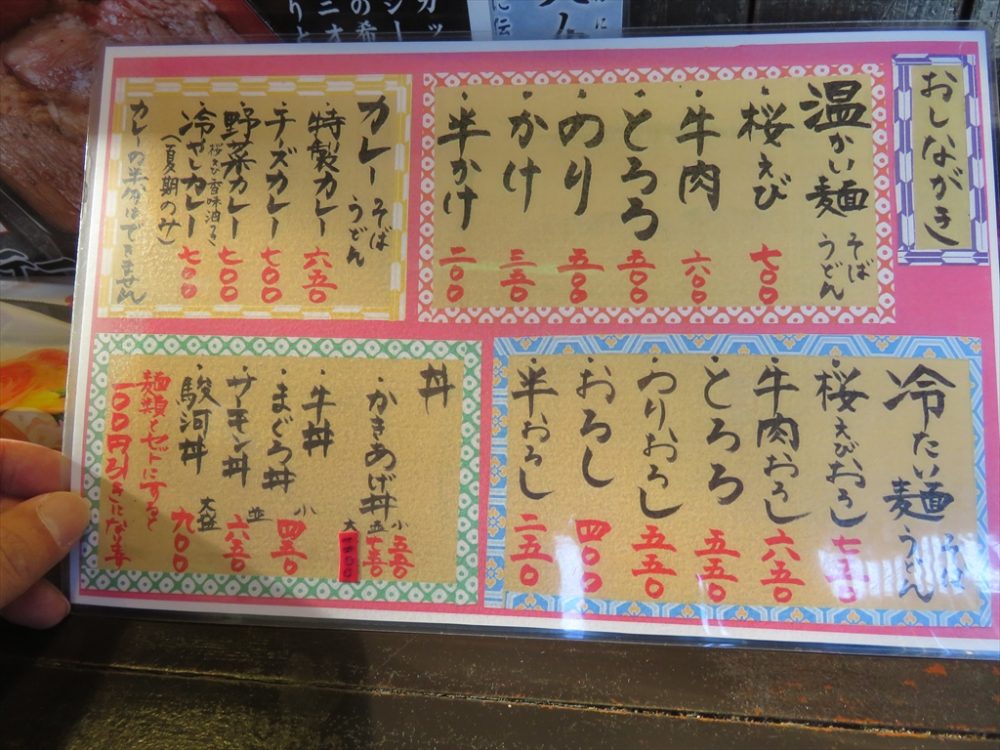 おしながき
温かい麺 そば うどん
・桜えび 七〇〇
・牛肉 六〇〇
・とろろ 五〇〇
・のり 五〇〇
・かけ 三五〇
・半かけ 二〇〇
カレー そば うどん
・特製カレー 六五〇
・チーズカレー 七〇〇
・野菜カレー 七〇〇
桜えび香味油つき
・冷やしカレー 七〇〇
(夏期のみ)
カレーの半分はできません
冷たい麺 そば うどん
・桜えびおろし 七五〇
・牛肉おろし 六五〇
・とろろ 五五〇
・のりおろし 五五〇
・おろし 四〇〇
・半おろし 二五〇
丼
・かきあげ丼
小 五五〇
並
大
・牛丼
・まぐろ丼
・サモン丼
・駿河丼
小 四五〇
並 六五〇
大盛 九〇〇
麺類とセットにすると
一〇〇円引きになります